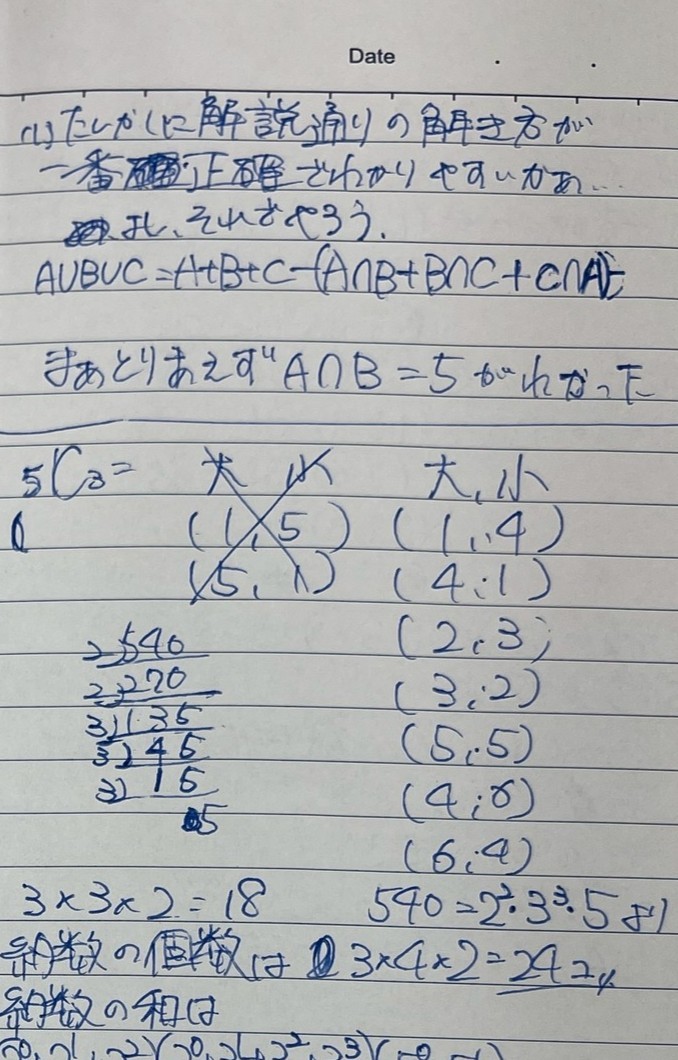 Date . .
(1) たしかに解説通りの解き方が
一番正確でわかりやすいかあ…
よし、それでやろう.
A∪B∪C=A+B+C-(A∩B+B∩C+C∩A)
まぁとりあえず A∩B=5がわかった
₅C₃= 大 小 大, 小
(1, 5) (1, 4)
(5, 1) (4, 1)
(2, 3)
2)540
2)270 (3, 2)
3)135 (5, 5)
3)45
3)15 (4, 6)
5
(6, 4)
3×3×2=18 540=2²・3³・5より
約数の個数は 3×4×2=24コ
約数の和は